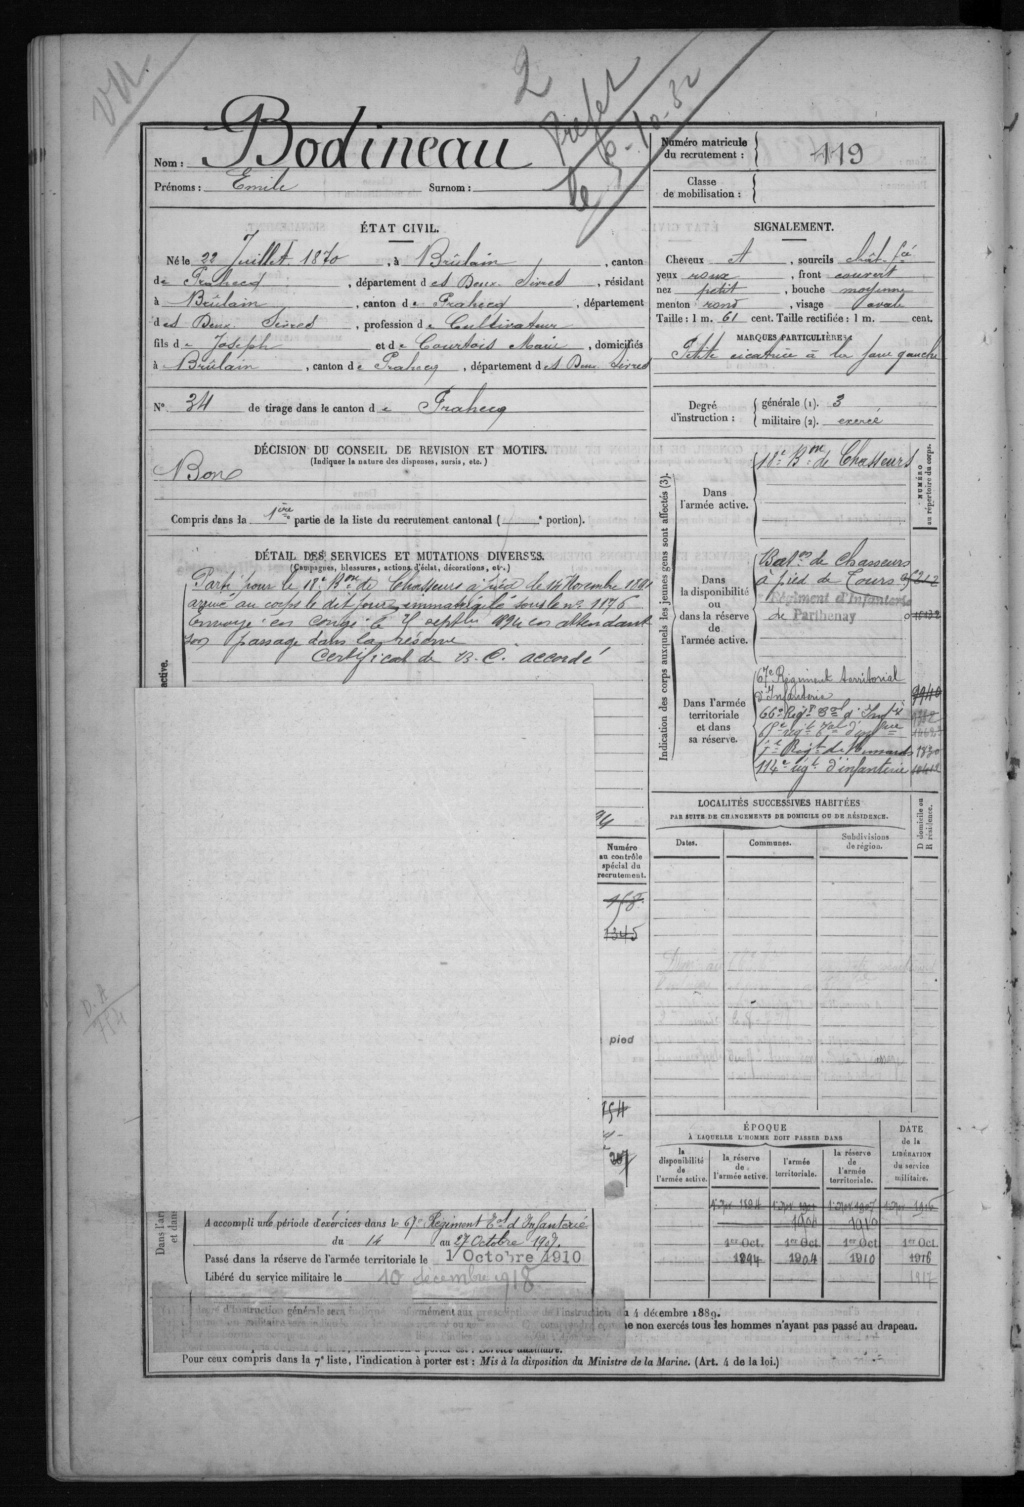 VU
2
Préfet
le 6-10-32
Nom : Bodineau
Prénoms : Emile Surnom :
Numéro matricule du recrutement : 119
Classe de mobilisation :
ÉTAT CIVIL.
Né le 22 Juillet 1870, à Brûlain, canton
de Prahecq, département des Deux Sèvres, résidant
à Brûlain, canton de Prahecq, département
des Deux Sèvres, profession de Cultivateur
fils de Joseph et de Courtois Marie, domiciliés
à Brûlain, canton de Prahecq, département des Deux Sèvres
N° 34 de tirage dans le canton de Prahecq
SIGNALEMENT.
Cheveux A, sourcils chât. fcé
yeux roux, front couvert
nez petit, bouche moyenne
menton rond, visage ovale
Taille : 1 m. 61 cent. Taille rectifiée : 1 m. cent.
MARQUES PARTICULIÈRES :
Petite cicatrice à la joue gauche
Degré d'instruction :
générale (1). 3
militaire (2). exercé
DÉCISION DU CONSEIL DE REVISION ET MOTIFS.
(Indiquer la nature des dispenses, sursis, etc.)
Bon
Compris dans la 1ère partie de la liste du recrutement cantonal ( e portion).
DÉTAIL DES SERVICES ET MUTATIONS DIVERSES.
(Campagnes, blessures, actions d'éclat, décorations, etc.)
Parti pour le 18e Bon de Chasseurs à pied le 14 Novembre 1891
arrivé au corps le dit jour, immatriculé sous le no 1176
Envoyé en congé le septbre 1894 en attendant
son passage dans la réserve
Certificat de B. C. accordé
active.
Indication des corps auxquels les jeunes gens sont affectés (3).
NUMÉRO au répertoire du corps.
Dans l'armée active.
18e Bon de Chasseurs
Dans la disponibilité ou dans la réserve de l'armée active.
Baton de Chasseurs
à pied de Tours
Régiment d'Infanterie
de Parthenay
Dans l'armée territoriale et dans sa réserve.
67e Régiment territorial
d'Infanterie
66e Regt
7e Regt de Hussards 1830
114e régt d'infanterie
94
Numéro au contrôle spécial du recrutement.
158
1345
pied
754
207
D. A
754
LOCALITÉS SUCCESSIVES HABITÉES
PAR SUITE DE CHANGEMENTS DE DOMICILE OU DE RÉSIDENCE.
Dates. Communes. Subdivisions de région. D domicile ou R résidence.
ÉPOQUE
À LAQUELLE L'HOMME DOIT PASSER DANS
DATE de la LIBÉRATION du service militaire.
la disponibilité de l'armée active. la réserve de l'armée active. l'armée territoriale. la réserve de l'armée territoriale.
1904 1910
1er Oct. 1er Oct 1er Oct 1er Oct
1894 1904 1910 1916
1917
Dans l'ar
et dans
A accompli une période d'exercices dans le 67e Régiment Eal d'Infanterie
du 14 au 27 Octobre 1907.
Passé dans la réserve de l'armée territoriale le 1 Octobre 1910
Libéré du service militaire le 10 décembre 1918
(1) Le degré d'instruction générale sera indiqué conformément aux prescriptions de l'instruction du 4 décembre 1889.
ne non exercés tous les hommes n'ayant pas passé au drapeau.
l'indication à porter est : Service auxiliaire.
Pour ceux compris dans la 7e liste, l'indication à porter est : Mis à la disposition du Ministre de la Marine. (Art. 4 de la loi.)